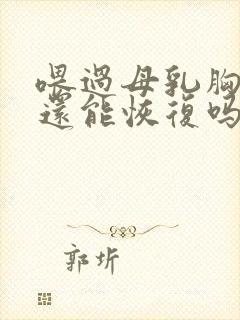 喂過母乳胸
還能恢復嗎
郭圻